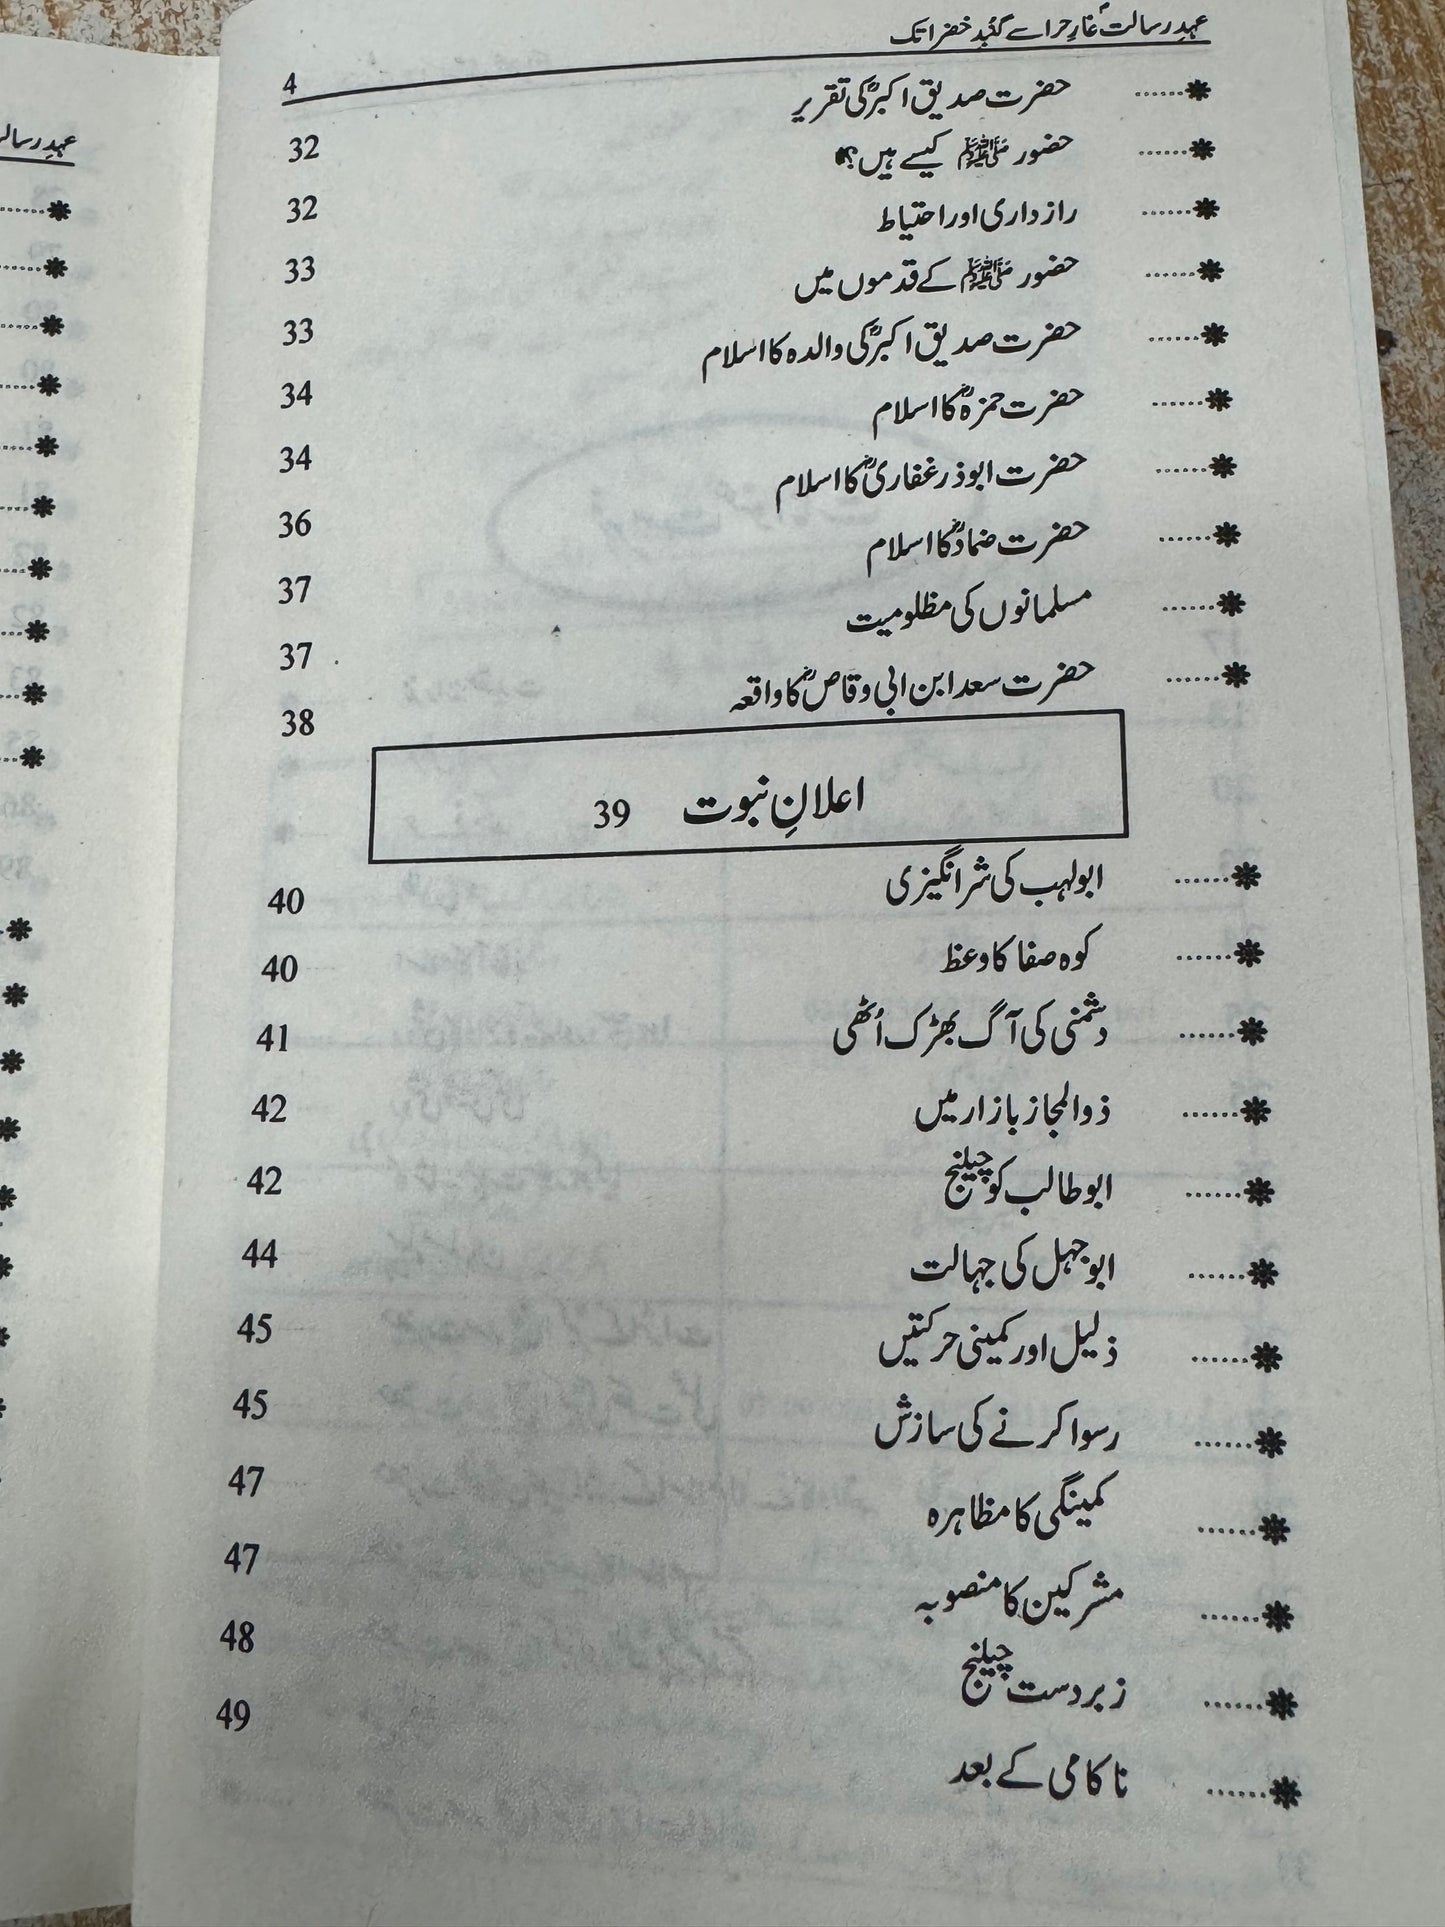 عہدِ رسالتؐ غارِ حرا سے گنبدِ خضرا تک
4
❋...... حضرت صدیق اکبرؓ کی تقریر 32
❋...... حضور ﷺ کیسے ہیں؟ 32
❋...... رازداری اور احتیاط 33
❋...... حضور ﷺ کے قدموں میں 33
❋...... حضرت صدیق اکبرؓ کی والدہ کا اسلام 34
❋...... حضرت حمزہؓ کا اسلام 34
❋...... حضرت ابوذر غفاریؓ کا اسلام 36
❋...... حضرت ضمادؓ کا اسلام 37
❋...... مسلمانوں کی مظلومیت 37
❋...... حضرت سعد ابن ابی وقاصؓ کا واقعہ 38
اعلانِ نبوت 39
❋...... ابولہب کی شرانگیزی 40
❋...... کوہ صفا کا وعظ 40
❋...... دشمنی کی آگ بھڑک اُٹھی 41
❋...... ذوالمجاز بازار میں 42
❋...... ابوطالب کو چیلنج 42
❋...... ابوجہل کی جہالت 44
❋...... ذلیل اور کمینی حرکتیں 45
❋...... رسوا کرنے کی سازش 45
❋...... کمینگی کا مظاہرہ 47
❋...... مشرکین کا منصوبہ 47
❋...... زبردست چیلنج 48
❋...... ناکامی کے بعد 49
عہدِ رسالت